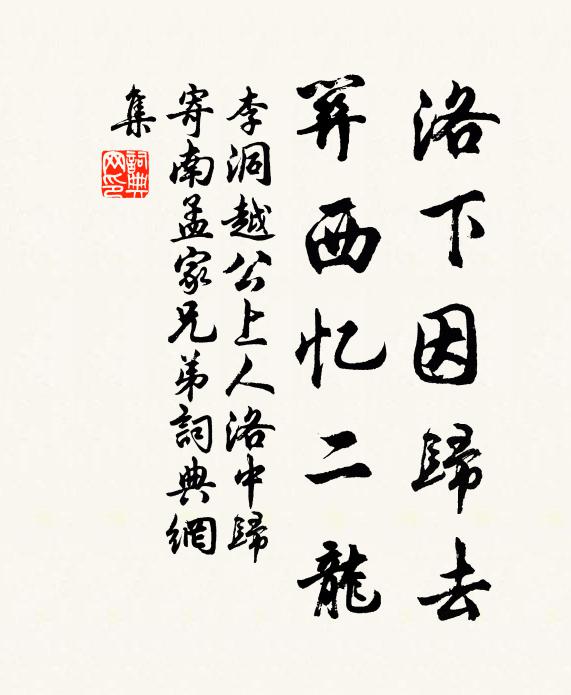 洛下因歸去
關西忆二龍
李洞越公上人洛中歸
寄南孟家兄弟詞典網
集
詞典
网印